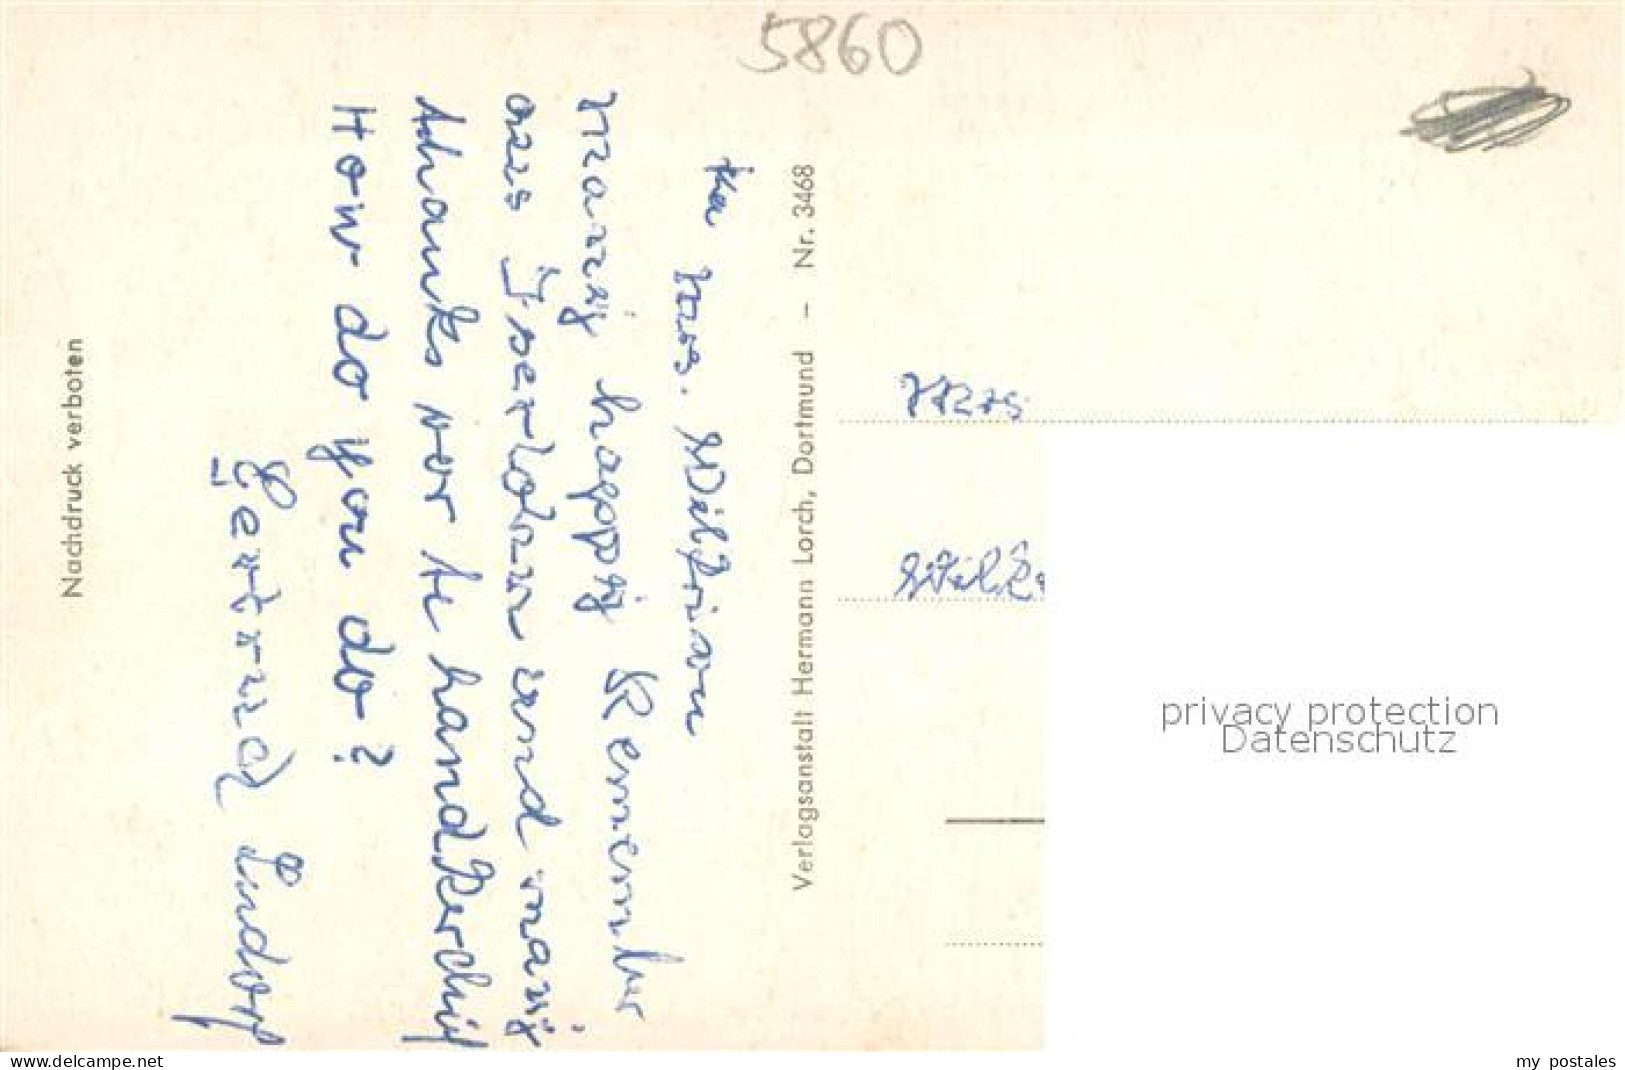 5860
the Mrs. Wilkrian
Many happy Remember
aus Iserlohn und many
thanks vor te handkerchif
How do you do?
Gertrud Lindorf
Nachdruck verboten
Verlagsanstalt Hermann Lorch, Dortmund – Nr. 3468
Mrs
privacy protection
Datenschutz
www.delcampe.net
my postales